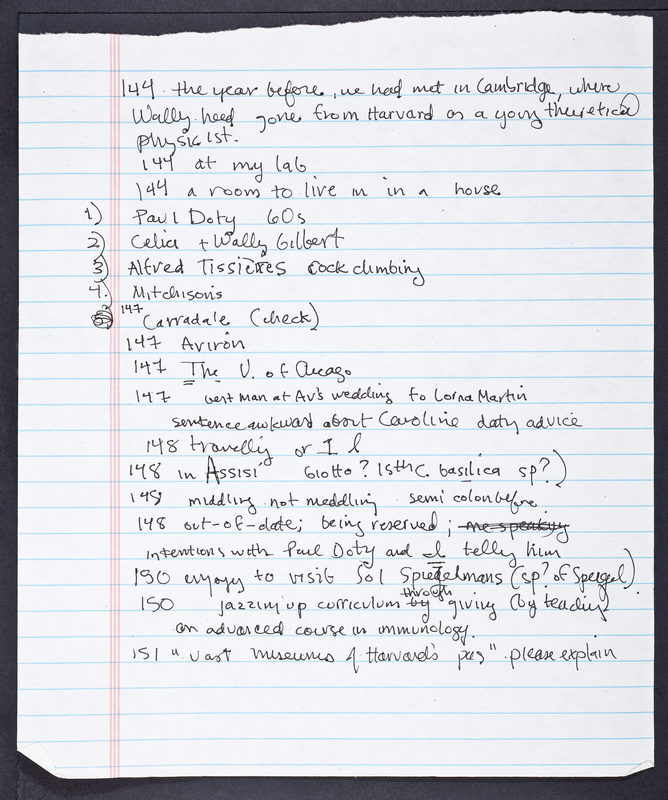 144 the year before, we had met in Cambridge, where
Wally had gone from Harvard as a young theoretical
physicist.
144 at my lab
144 a room to live in in a house
1) Paul Doty 60s
2) Celia + Wally Gilbert
3) Alfred Tissières rock climbing
4. Mitchisons
147 Carradale (check)
147 Aviron
147 The U. of Chicago
147 best man at Av's wedding to Lorna Martin
sentence awkward about Caroline daty advice
148 travelly or I l
148 in Assisi Giotto? 15th C. basilica sp?)
148 middling not meddling semi colon before
148 out-of-date; being reserved; me speaking
intentions with Paul Doty and I telly him
150 enjoyy to visit Sol Spiegelmans (sp? of Speigel)
150 jazzing up curriculum by through giving (by teachig
an advanced course in immunology.
151 "vast museums of Harvard's past" please explain